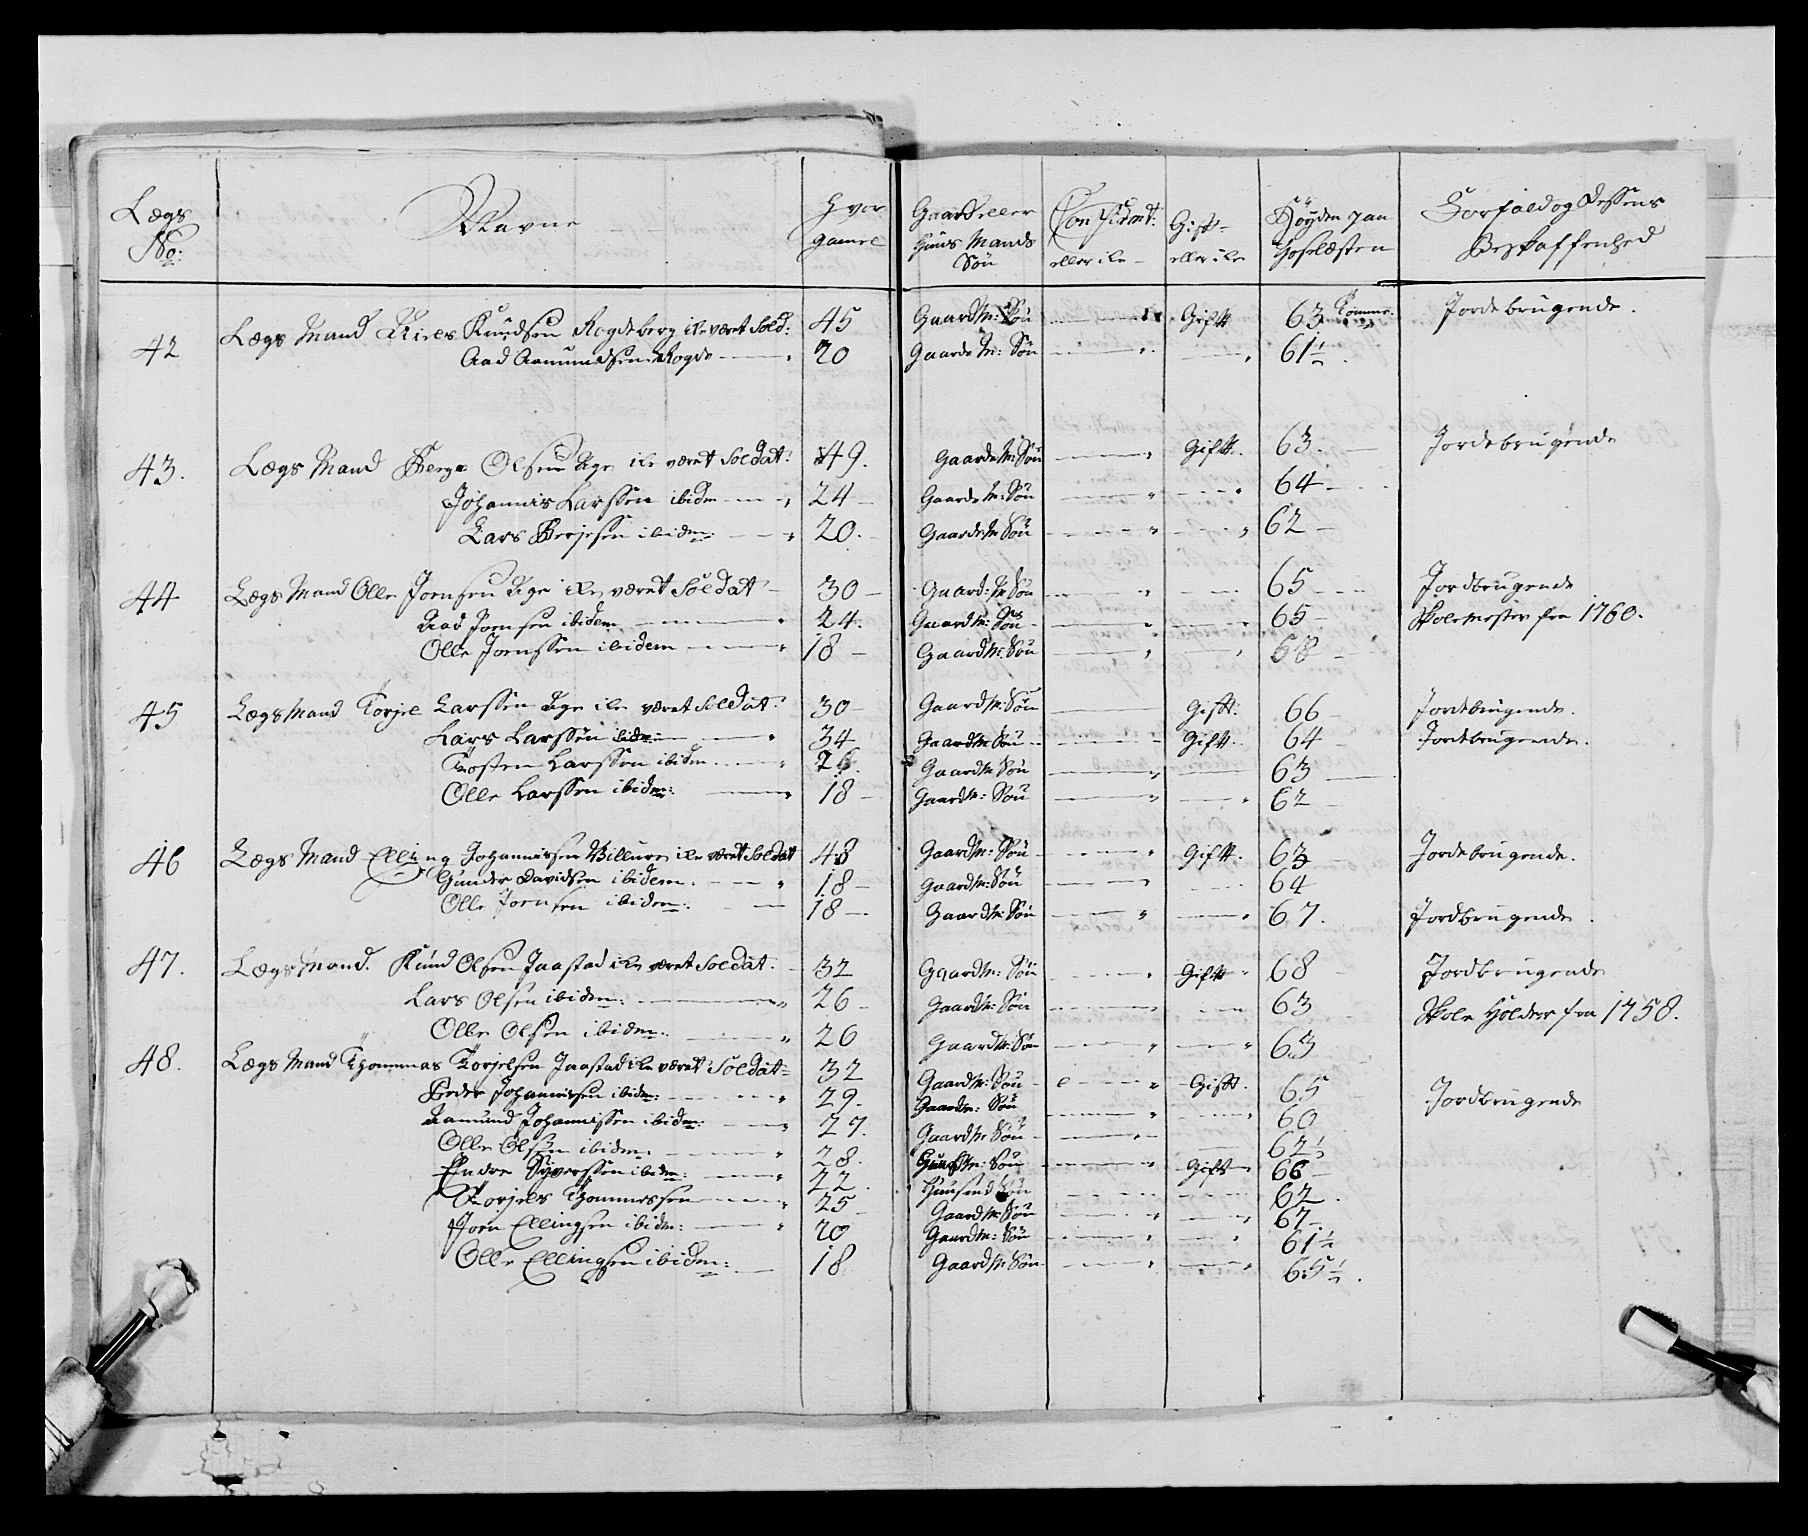 Lægs No: | Navne | Hvor gamel | Gaard eller Huus Mands Søn | Confirmt: eller ile | Gift eller ile | Høyden paa Hoselæsten | Forfald og dessens Beskaffenhed
42 | Lægs Mand Knudsen Rogdeberg ile været Sold: | 45 | Gaardm: Søn | | Gift | 63 Tomme. | Jordebrugende.
Aad Aamundsen Rogde | 20 | Gaards M: Søn | | | 61½
43. | Lægs Mand Berge Olsen Age ile været Soldat: | 49. | Gaards M: Søn | | Gift. | 63. | Jordebrugende
Johannis Larssen ibidm | 24 | Gaards M: Søn | | | 64
Lars Berjesen ibidm: | 20. | Gaards M Søn | | | 62
44 | Lægs Mand Olle Jornsen Age ile været Soldat | 30 | Gaard: M Søn | | | 65 | Jordbrugende
Aad Jornsen ibidem | 24. | Gaardm: Søn | | | 65 | Skolemester fra 1760.
Olle Jornssen ibidem | 18 | Gaardm: Søn | | | 68
45 | Lægs Mand Torjel Larssen Age ile været Soldat: | 30 | Gaardm: Søn | | Gift: | 66 | Jordebrugende.
Lars Larssen ibidm: | 34 | Gaardm Søn | | Gift. | 64 | Jordebrugende.
Tosten Larssen ibidm. | 26. | Gaardm Søn | | | 63
Olle Larssen ibidm: | 18 | Gaardm: Søn | | | 62
46 | Lægs Mand Elling Johannissen Billure ile været Soldat | 48 | Gaardm: Søn | | Gift. | 63 | Jordebrugende.
Gunder Davidsen ibidem. | 18 | Gaardm: Søn | | | 64
Olle Jornsen ibidem: | 18 | Gaardm: Søn | | | 67. | Jordbrugende.
47. | Lægs Mand. Knud Olsen Jaastad ile været Soldat. | 32 | Gaardm: Søn | | Gift | 68 | Jordbrugende
Lars Olsen ibidm: | 26 | Gaardm: Søn | | | 63 | Skole Holder fra 1758.
Olle Olsen ibidm: | 26 | Gaardm: Søn | | | 63
48. | Lægs Mand Thommas Torjelsen Jaastad ile været Soldat | 32 | Gaardm: Søn | | Gift. | 65 | Jordbrugende
Peder Johannissen ibidm: | 29. | Gaardm: Søn | | | 60
Aamund Johannissen ibidm: | 27. | Gaardm Søn | | | 62½
Olle Olsen ibidm: | 28. | Gaardm: Søn | | Gift | 66
Endre Siverssen ibidm: | 22. | Huusmd Søn | | | 62.
Torjels Thommessen | 25 | Gaardm: Søn | | | 67
Jorn Ellingsen ibidm: | 20 | Gaardm: Søn | | | 61½
Olle Ellingsen ibidem: | 18 | Gaardm: Søn | | | 65½.